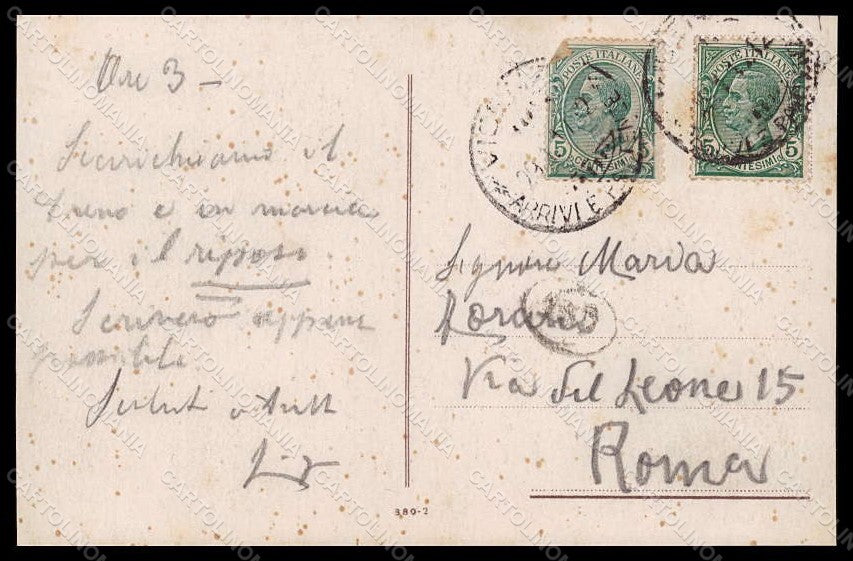 Ore 3 –
Scarichiamo il
treno e in marcia
per il riposo.
Scriverò appena
possibile
Saluti a tutti
POSTE ITALIANE
5 CENTESIMI 5
POSTE ITALIANE
5 CENTESIMI 5
ARRIVI E
Signora Maria
Via del Leone 15
Roma
880-2
CARTOLINOMANIA